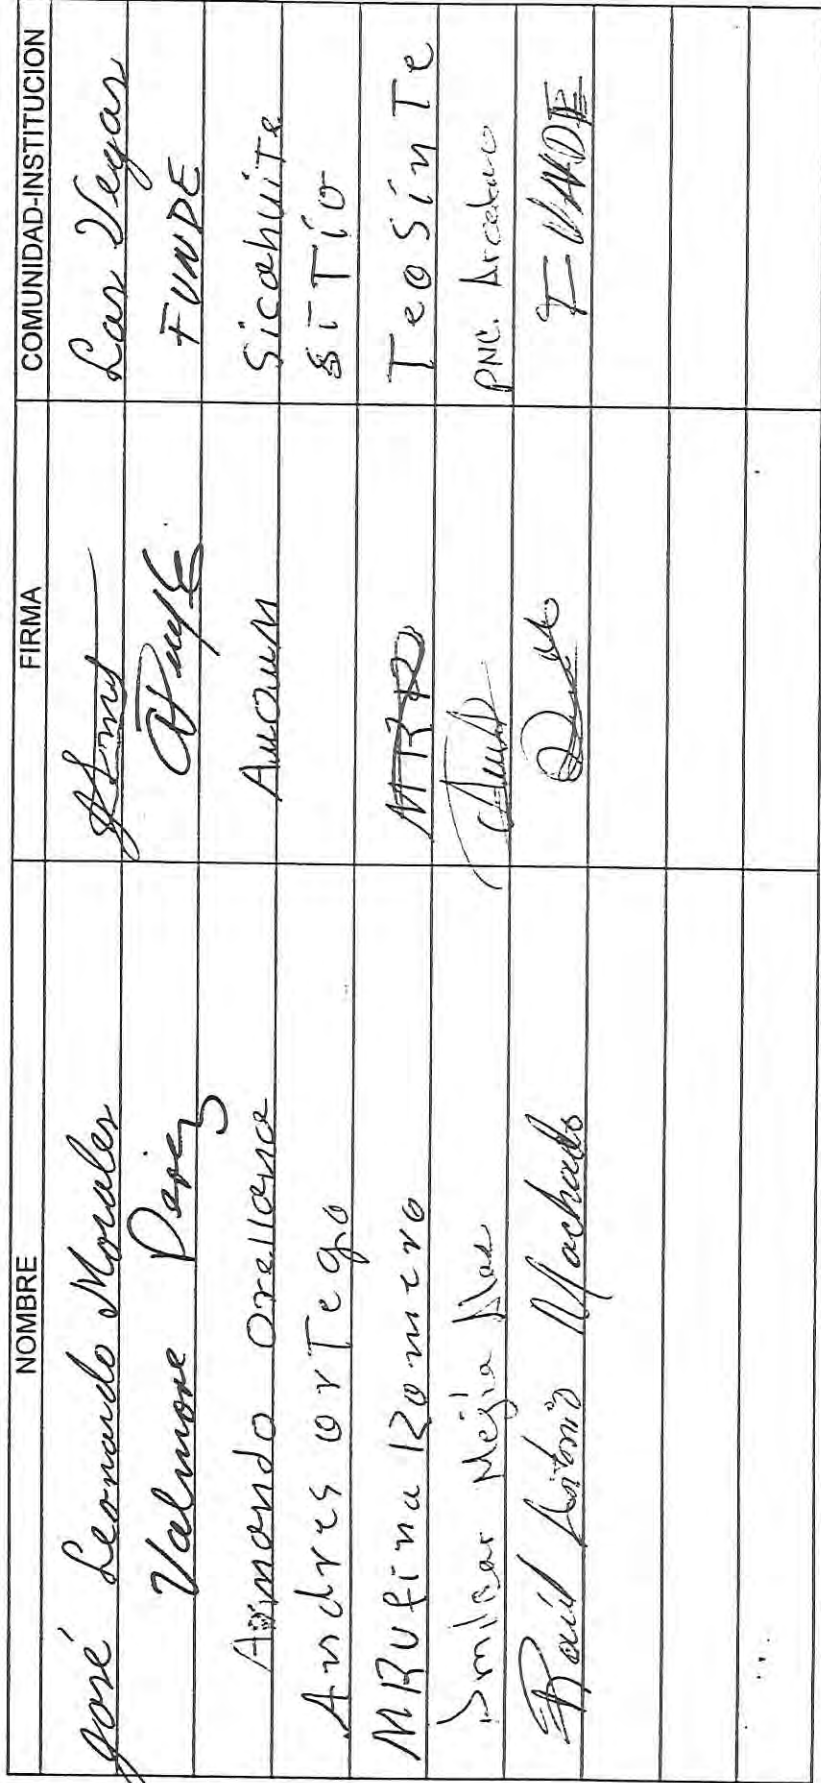 NOMBRE FIRMA COMUNIDAD-INSTITUCION
José Leonardo Morales Las Vegas
Valmore Perez FUNDE
Armando Orellana Sicahuite
Andres orTega SiTio
MRufina Romero MRR TeoSinTe
Mejia PNC. Arcatao
Raúl Antonio Machado FUNDE